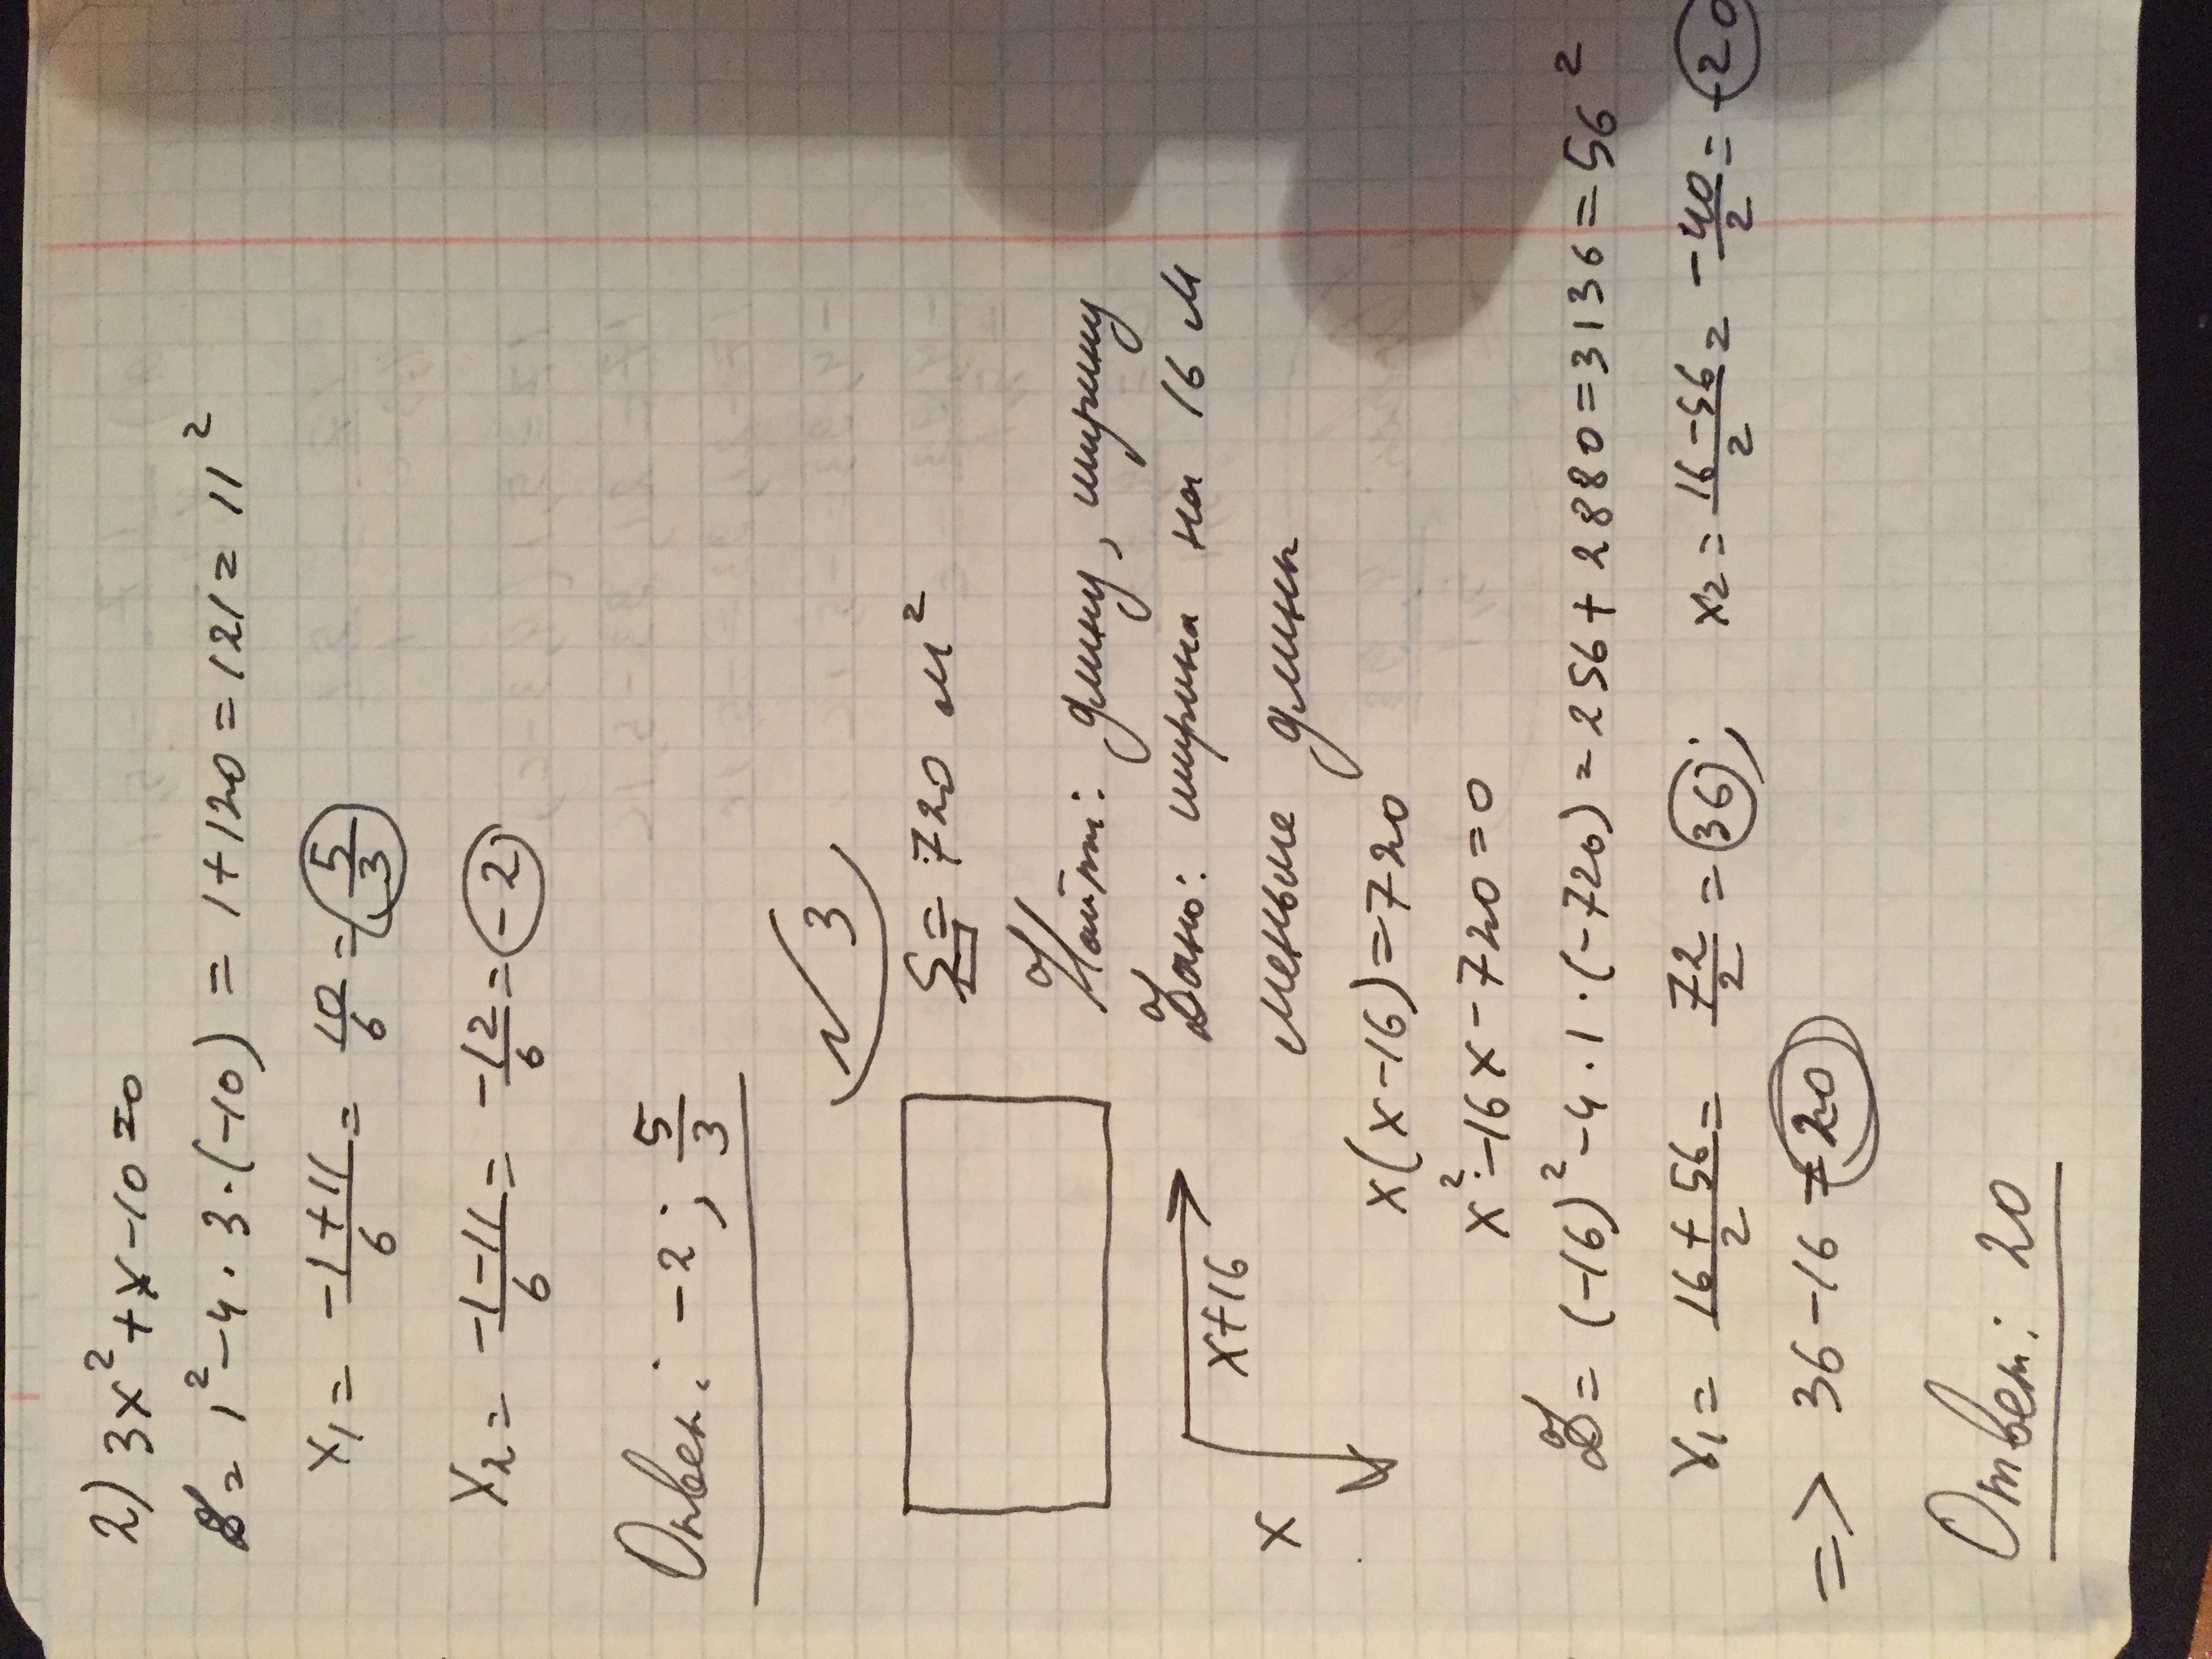 2) 3x² + x - 10 = 0
D = 1² - 4 · 3 · (-10) = 1 + 120 = 121 = 11²
x₁ = (-1 + 11)/6 = 10/6 = 5/3
x₂ = (-1 - 11)/6 = -12/6 = -2
Ответ: -2; 5/3
√3
S = 720 м²
Найти: длину, ширину
Дано: ширина на 16 м
меньше длины
x
x+16
x(x-16) = 720
x² - 16x - 720 = 0
D = (-16)² - 4 · 1 · (-720) = 256 + 2880 = 3136 = 56²
x₁ = (16 + 56)/2 = 72/2 = 36; x₂ = (16 - 56)/2 = -40/2 = -20
=> 36 - 16 = 20
Ответ: 20